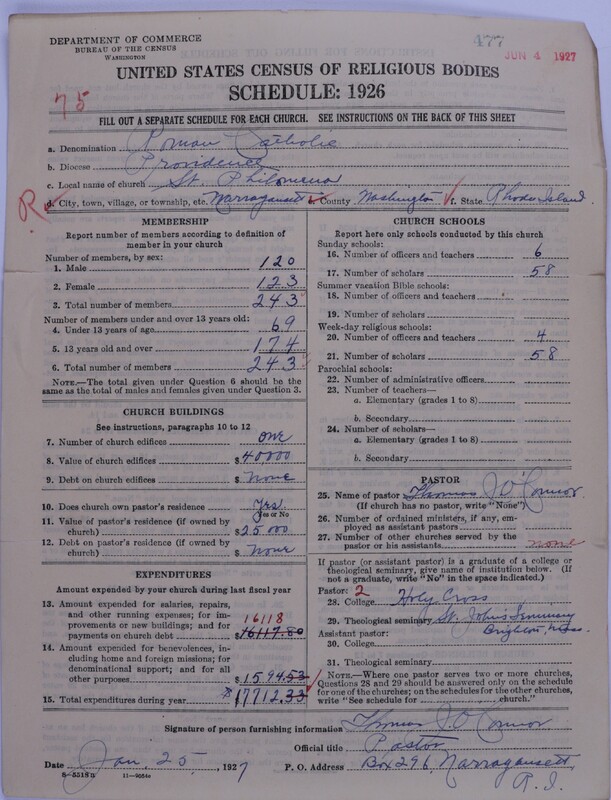 DEPARTMENT OF COMMERCE
BUREAU OF THE CENSUS
WASHINGTON
477
JUN 4 1927
UNITED STATES CENSUS OF RELIGIOUS BODIES
SCHEDULE: 1926
75
FILL OUT A SEPARATE SCHEDULE FOR EACH CHURCH. SEE INSTRUCTIONS ON THE BACK OF THIS SHEET
a. Denomination Roman Catholic
b. Diocese Providence
c. Local name of church St. Philomena
R d. City, town, village, or township, etc. Narragansett e. County Washington f. State Rhode Island
MEMBERSHIP
Report number of members according to definition of
member in your church
Number of members, by sex:
1. Male 120
2. Female 123
3. Total number of members 243
Number of members under and over 13 years old:
4. Under 13 years of age 69
5. 13 years old and over 174
6. Total number of members 243
NOTE.—The total given under Question 6 should be the
same as the total of males and females given under Question 3.
CHURCH BUILDINGS
See instructions, paragraphs 10 to 12
7. Number of church edifices one
8. Value of church edifices $ 40,000
9. Debt on church edifices $ none
10. Does church own pastor's residence Yes.
Yes or No
11. Value of pastor's residence (if owned by
church) $ 25000
12. Debt on pastor's residence (if owned by
church) $ none
EXPENDITURES
Amount expended by your church during last fiscal year
13. Amount expended for salaries, repairs,
and other running expenses; for im-
provements or new buildings; and for 16118
payments on church debt $ 16117.80
14. Amount expended for benevolences,
including home and foreign missions; for
denominational support; and for all
other purposes $ 1594.53
15. Total expenditures during year $ 17712.33
CHURCH SCHOOLS
Report here only schools conducted by this church
Sunday schools:
16. Number of officers and teachers 6
17. Number of scholars 58
Summer vacation Bible schools:
18. Number of officers and teachers
19. Number of scholars
Week-day religious schools:
20. Number of officers and teachers 4
21. Number of scholars 58
Parochial schools:
22. Number of administrative officers
23. Number of teachers—
a. Elementary (grades 1 to 8)
b. Secondary
24. Number of scholars—
a. Elementary (grades 1 to 8)
b. Secondary
PASTOR
25. Name of pastor Thomas J O'Connor
(If church has no pastor, write "None")
26. Number of ordained ministers, if any, em-
ployed as assistant pastors
27. Number of other churches served by the
pastor or his assistants none
If pastor (or assistant pastor) is a graduate of a college or
theological seminary, give name of institution below. (If
not a graduate, write "No" in the space indicated.)
Pastor: 2
28. College Holy Cross
29. Theological seminary St. John's Seminary
Brighton, Mass.
Assistant pastor:
30. College
31. Theological seminary
NOTE.—Where one pastor serves two or more churches,
Questions 28 and 29 should be answered only on the schedule
for one of the churches; on the schedules for the other churches,
write "See schedule for church."
Signature of person furnishing information Thomas J O'Connor
Official title Pastor
Date Jan. 25, 1927 P. O. Address Box 296, Narragansett
R. I.
8—5518a 11—9664a